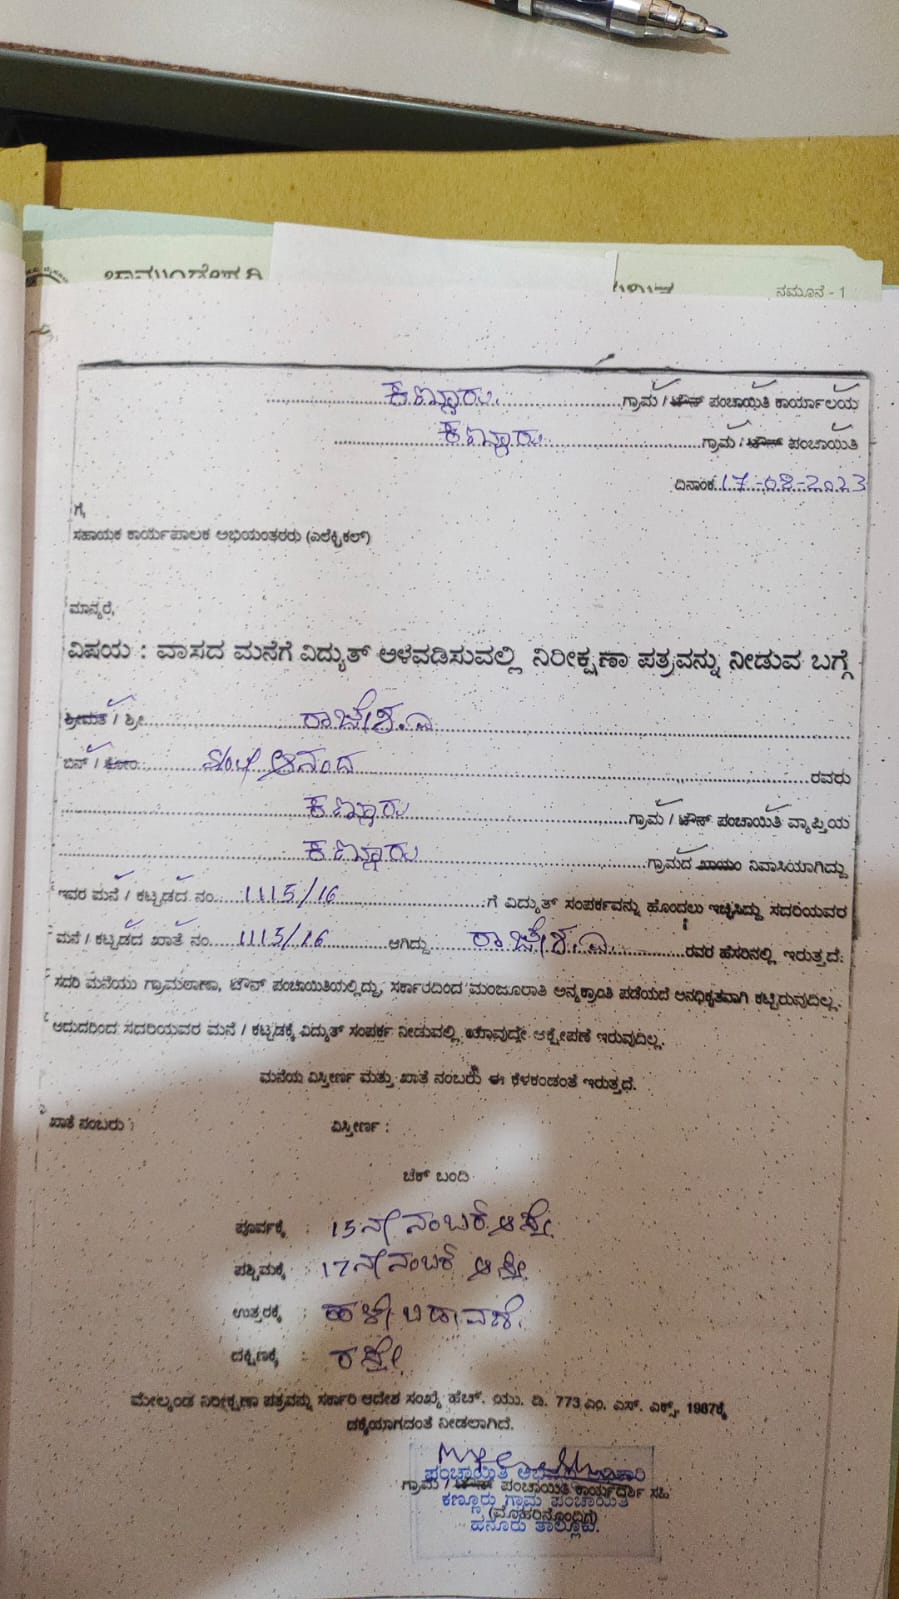 ನಮೂನೆ - 1
ಕಣ್ಣೂರು ಗ್ರಾಮ / ಟೌನ್ ಪಂಚಾಯಿತಿ ಕಾರ್ಯಾಲಯ
ಕಣ್ಣೂರು ಗ್ರಾಮ / ಟೌನ್ ಪಂಚಾಯಿತಿ
ದಿನಾಂಕ 17-08-2023
ಗೆ,
ಸಹಾಯಕ ಕಾರ್ಯಪಾಲಕ ಅಭಿಯಂತರರು (ಎಲೆಕ್ಟ್ರಿಕಲ್)
ಮಾನ್ಯರೆ,
ವಿಷಯ : ವಾಸದ ಮನೆಗೆ ವಿದ್ಯುತ್ ಅಳವಡಿಸುವಲ್ಲಿ ನಿರೀಕ್ಷಣಾ ಪತ್ರವನ್ನು ನೀಡುವ ಬಗ್ಗೆ
ಶ್ರೀಮತಿ / ಶ್ರೀ ರಾಜೇಶ. ಎ
ಬಿನ್ / ಕೋಂ ಆನಂದ ರವರು
ಕಣ್ಣೂರು ಗ್ರಾಮ / ಟೌನ್ ಪಂಚಾಯಿತಿ ವ್ಯಾಪ್ತಿಯ
ಕಣ್ಣೂರು ಗ್ರಾಮದ ಖಾಯಂ ನಿವಾಸಿಯಾಗಿದ್ದು
ಇವರ ಮನೆ / ಕಟ್ಟಡದ ನಂ. 1115/16 ಗೆ ವಿದ್ಯುತ್ ಸಂಪರ್ಕವನ್ನು ಹೊಂದಲು ಇಚ್ಛಿಸಿದ್ದು ಸದರಿಯವರ
ಮನೆ / ಕಟ್ಟಡದ ಖಾತೆ ನಂ 1115/16 ಆಗಿದ್ದು ರಾಜೇಶ. ಎ. ರವರ ಹೆಸರಿನಲ್ಲಿ ಇರುತ್ತದೆ.
ಸದರಿ ಮನೆಯು ಗ್ರಾಮಠಾಣಾ, ಟೌನ್ ಪಂಚಾಯಿತಿಯಲ್ಲಿದ್ದು, ಸರ್ಕಾರದಿಂದ ಮಂಜೂರಾತಿ ಅನ್ಯಕ್ರಾಂತಿ ಪಡೆಯದೆ ಅನಧಿಕೃತವಾಗಿ ಕಟ್ಟಿರುವುದಿಲ್ಲ.
ಆದುದರಿಂದ ಸದರಿಯವರ ಮನೆ / ಕಟ್ಟಡಕ್ಕೆ ವಿದ್ಯುತ್ ಸಂಪರ್ಕ ನೀಡುವಲ್ಲಿ ಯಾವುದೇ ಆಕ್ಷೇಪಣೆ ಇರುವುದಿಲ್ಲ.
ಮನೆಯ ವಿಸ್ತೀರ್ಣ ಮತ್ತು ಖಾತೆ ನಂಬರು ಈ ಕೆಳಕಂಡಂತೆ ಇರುತ್ತದೆ.
ಖಾತೆ ನಂಬರು : ವಿಸ್ತೀರ್ಣ :
ಚೆಕ್ ಬಂದಿ
ಪೂರ್ವಕ್ಕೆ : 15ನೇ ನಂಬರ್ ಆಸ್ತಿ
ಪಶ್ಚಿಮಕ್ಕೆ : 17ನೇ ನಂಬರ್ ಆಸ್ತಿ
ಉತ್ತರಕ್ಕೆ : ಹಳೇ ಬಡಾವಣೆ
ದಕ್ಷಿಣಕ್ಕೆ : ರಸ್ತೇ
ಮೇಲ್ಕಂಡ ನಿರೀಕ್ಷಣಾ ಪತ್ರವನ್ನು ಸರ್ಕಾರಿ ಆದೇಶ ಸಂಖ್ಯೆ ಹೆಚ್. ಯು. ಡಿ. 773 ಎಂ. ಎಸ್. ಎಕ್ಸ್, 1987ಕ್ಕೆ
ಧಕ್ಕೆಯಾಗದಂತೆ ನೀಡಲಾಗಿದೆ.
ಪಂಚಾಯಿತಿ ಅಭಿವೃದ್ಧಿ ಅಧಿಕಾರಿ
ಗ್ರಾಮ / ಟೌನ್ ಪಂಚಾಯಿತಿ ಕಾರ್ಯದರ್ಶಿ ಸಹಿ
ಕಣ್ಣೂರು ಗ್ರಾಮ ಪಂಚಾಯಿತಿ
(ಮೊಹರಿನೊಂದಿಗೆ)
ಹನೂರು ತಾಲ್ಲೂಕು.